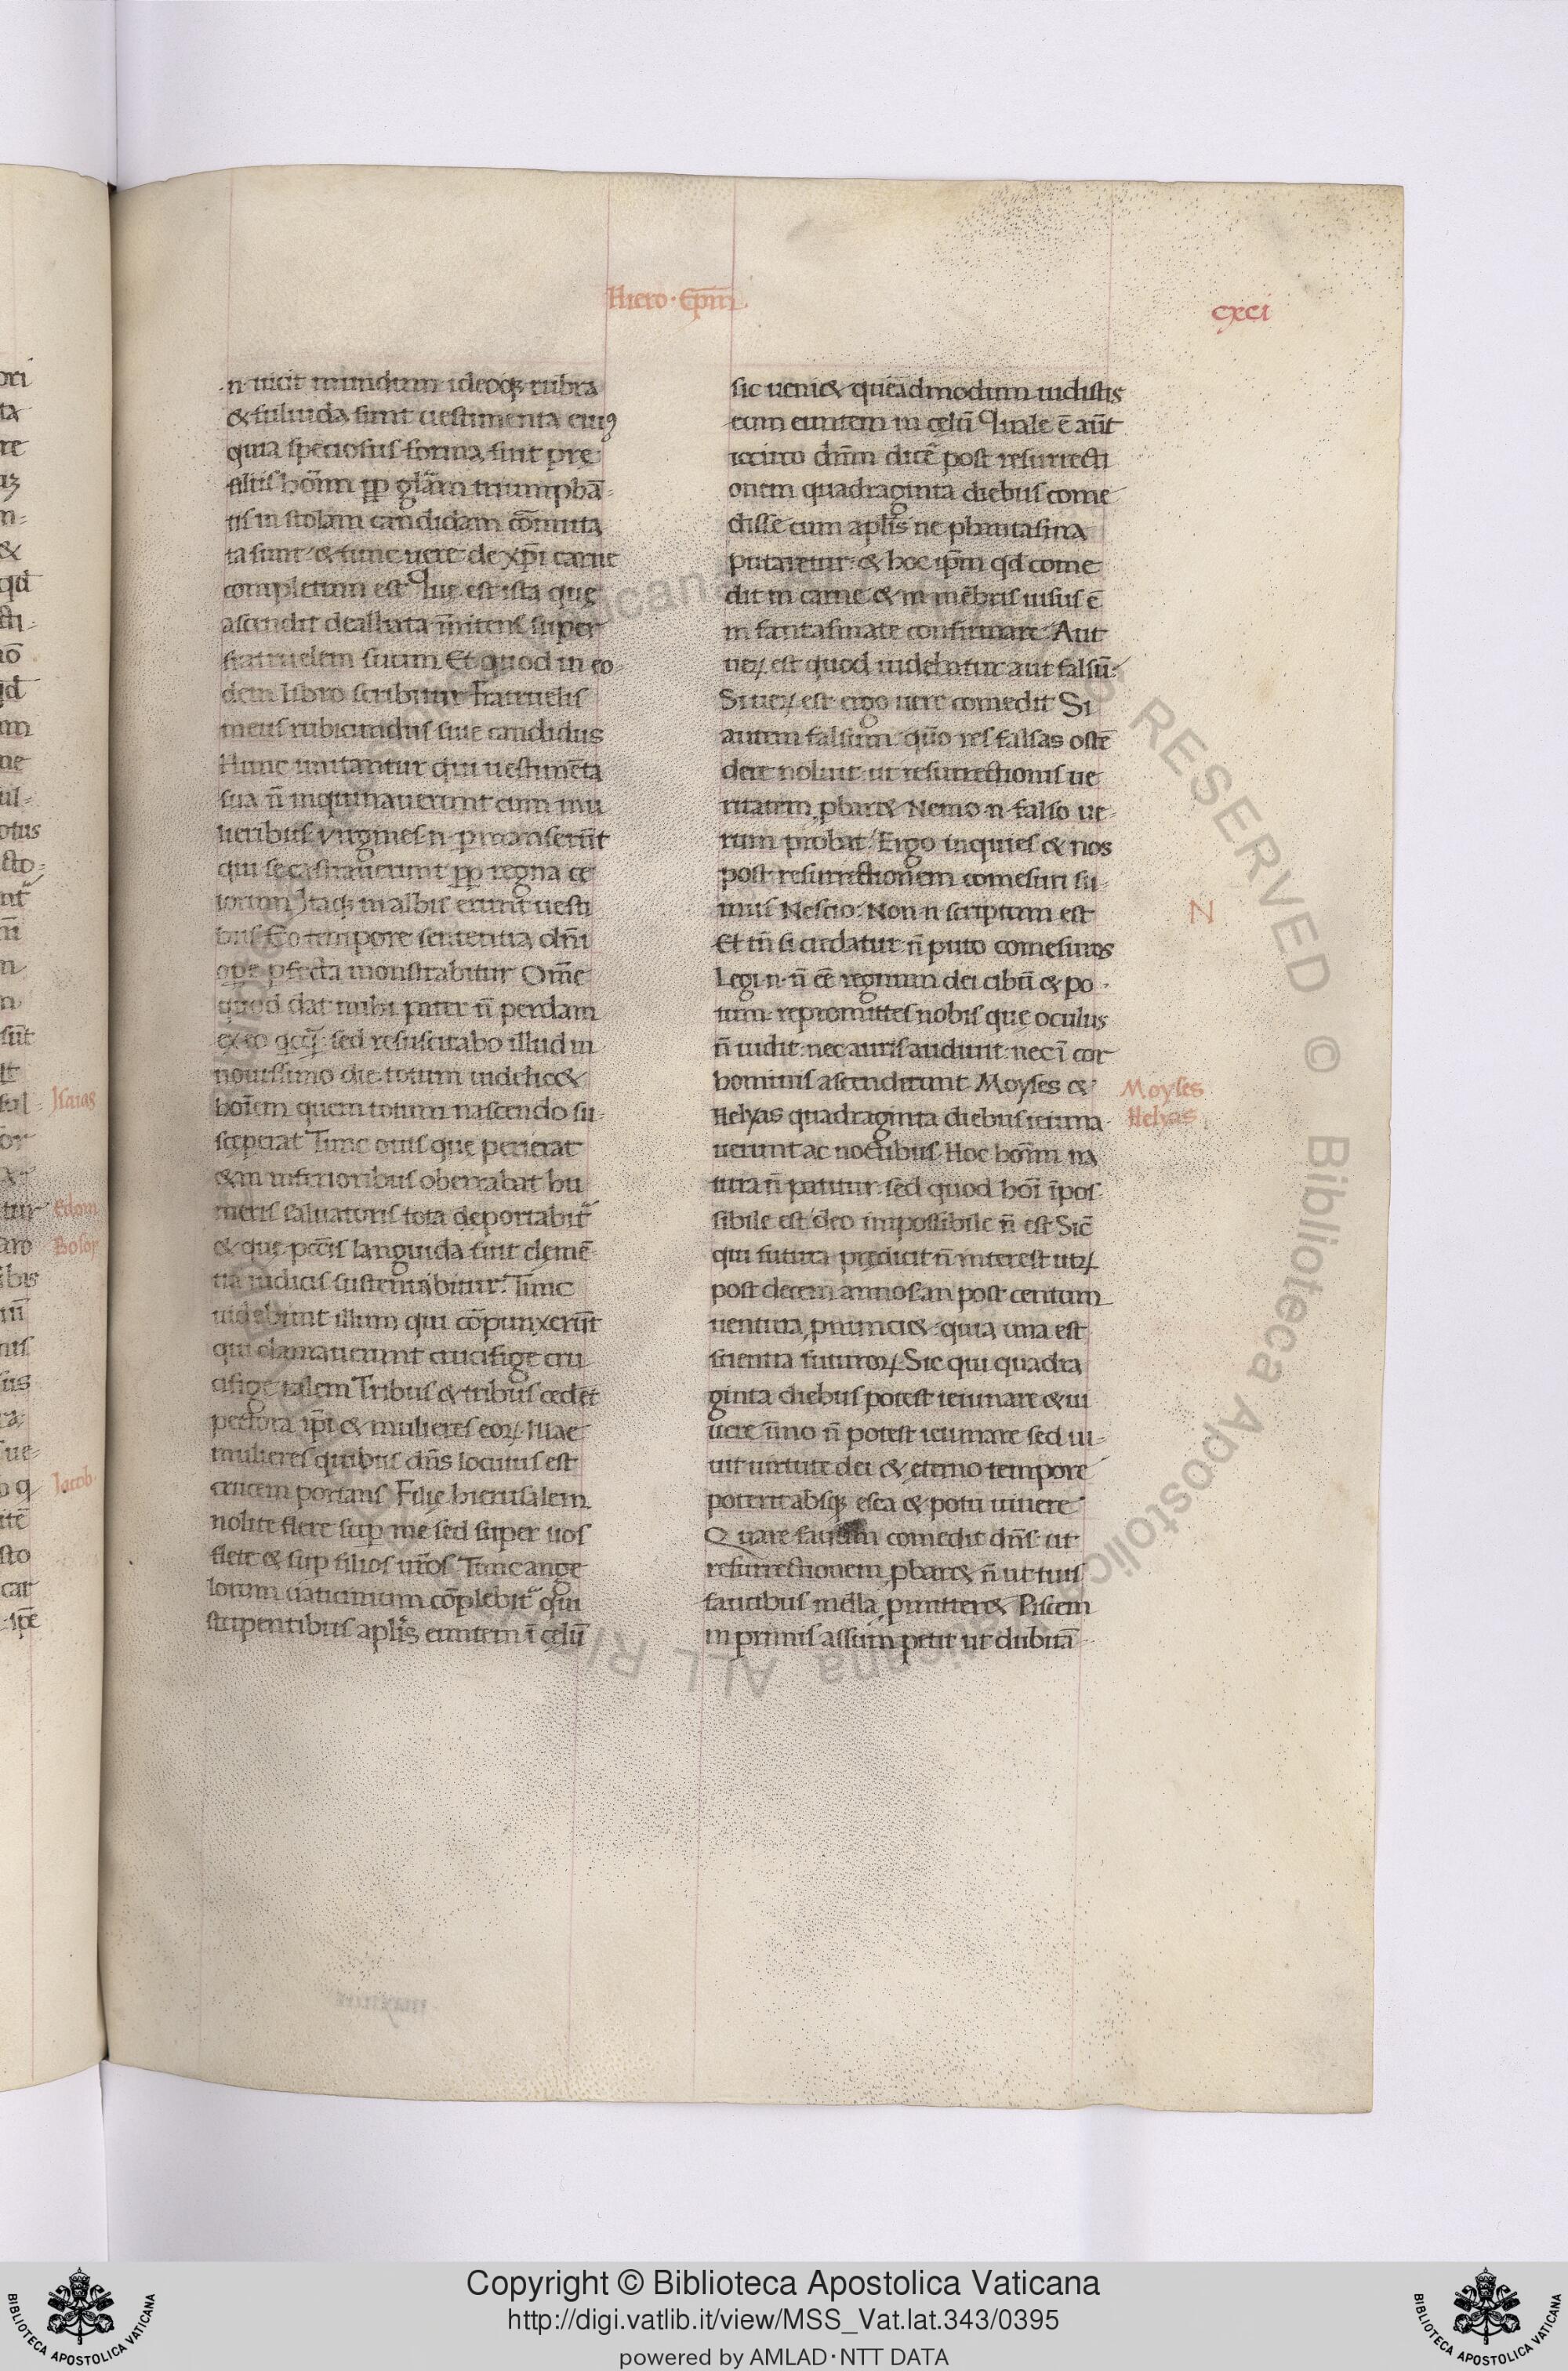 Hiero · Ep̄m
cxci
n̄ uicit mundum ideoq; rubra
& fuluida sunt uestimenta eiuꝯ
quia speciosus forma sint pre
filiis hoīm pp glām triumphā-
tis in stolam candidam cōmuta
ta sunt & tunc uere de xp̄i carne
completum est Que est ista que
ascendit dealbata īnitens super
fratruelem suum Et quod in eo
dem libro scribitur Fratruelis
meus rubicundus siue candidus
Hunc imitantur qui uestimēta
sua n̄ inquinauerunt cum mu
lieribus virgines n̄ permanserūt
qui se castrauerunt pp regna ce
lorum Itaq; in albis erunt uesti
bus Eo tempore sententia dn̄i
ope pfecta monstrabitur Om̄e
quod dat mihi pater n̄ perdam
ex eo qcq̄ sed resuscitabo illud in
nouissimo die totum uidelic&
hoīem quem totum nascendo su-
sceperat Tunc ouis que perierat
& in inferioribus oberrabat hu
meris saluatoris tota deportabit̄
& que pccīs languida fuit clemē-
tia iudicis sustentabitur Tunc
uidebunt illum qui cōpunxerūt
qui clamauerunt crucifige cru
cifige talem Tribus & tribus cedet
pectora ip̄i & mulieres eoꝝ Illae
mulieres quibus dn̄s locutus est
crucem portans Filie hierusalem
nolite flere sup me sed super uos
flete & sup filios ur̄os Tunc ange
lorum uaticinium cōplebit̄ qui
stupentibus aplis euntem ī celū
sic ueni& queādmodum uidistis
eum euntem in celū Quale ē aūt
iccirco dn̄m dicē post resurrecti
onem quadraginta diebus come
disse cum aplis ne phantasma
putaretur & hoc ipm̄ qd come
dit in carne & in mēbris uisus ē
in fantasmate confirmare Aut
ueꝝ est quod uidebatur aut falsū
Si ueꝝ est ergo uere comedit Si
autem falsum quō res falsas ostē
dere noluit ut resurrectionis ue
ritatem pbar& Nemo n̄ falso ue
rum probat Ergo inquies & nos
post resurrectionem comesuri su-
mus Nescio Non n̄ scriptum est
Et tn̄ si credatur n̄ puto comesuros
Legi n̄ n̄ eē regnum dei cibū & po
tum repromittes nobis que oculus
n̄ uidit nec auris audiuit nec ī cor
hominis ascenderunt Moyses &
Helyas quadraginta diebus ieiuna
uerunt ac noctibus Hoc hoīm na
tura n̄ patitur sed quod hoī īpos
sibile est deo impossibile n̄ est Sic̄
qui futura predicit n̄ interest utꝝ
post decem annos an post centum
uentura pnunci& quia una est
scientia futuroꝝ Sic qui quadra
ginta diebus potest ieiunare & ui
uere īmo n̄ potest ieiunare sed ui-
uit uirtute dei & eterno tempore
poterit absq; esca & potu uiuere
Quare fauum comedit dn̄s ut
resurrectionem pbar& n̄ ut tuis
faucibus mella pmitter& Piscem
in prunis assum petit ut dubitā-
N
Moyses
Helyas
Isaias
Edom
Bosor
Jacob
Copyright © Biblioteca Apostolica Vaticana
http://digi.vatlib.it/view/MSS_Vat.lat.343/0395
powered by AMLAD·NTT DATA
BIBLIOTECA APOSTOLICA VATICANA
BIBLIOTECA APOSTOLICA VATICANA